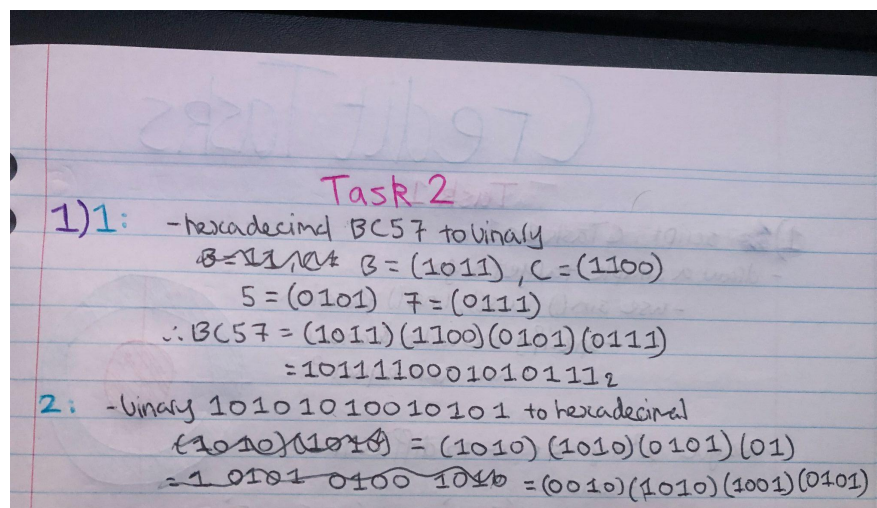 Task 2
1) 1: - hexadecimal BC57 to binary
B = (1011), C = (1100)
5 = (0101) 7 = (0111)
∴ BC57 = (1011)(1100)(0101)(0111)
= 1011110001010111₂
2: - binary 10101010010101 to hexadecimal
(1010)(1010) = (1010)(1010)(0101)(01)
= 1 0101 0100 1010 = (0010)(1010)(1001)(0101)